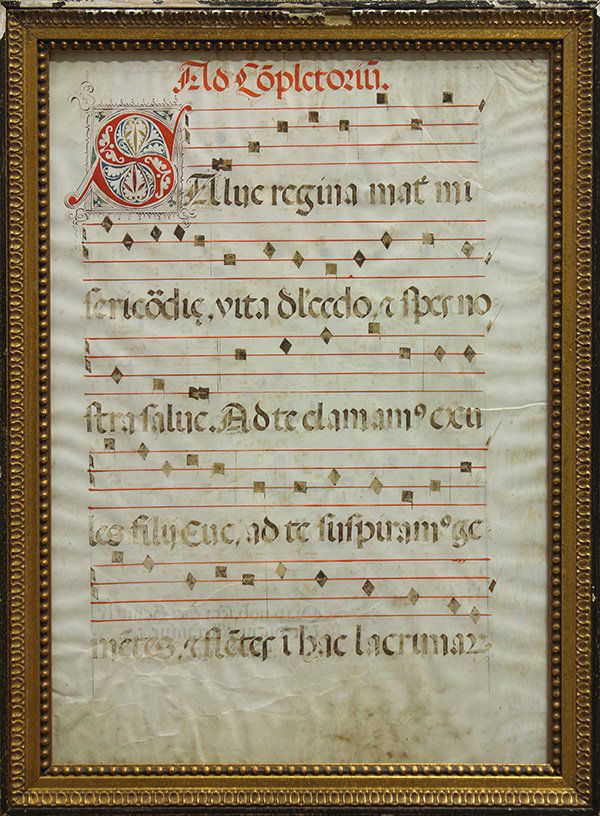 Ad Cõpletoriũ.
SAlue regina mat̃ mi
sericõdię, vita dl̕cedo, ⁊ spes no
stra salue. Ad te clamamꝰ exu
les filij Eue, ad te suspiramꝰ ge-
mẽtes, ⁊ flẽtes ĩ hac lacrimar